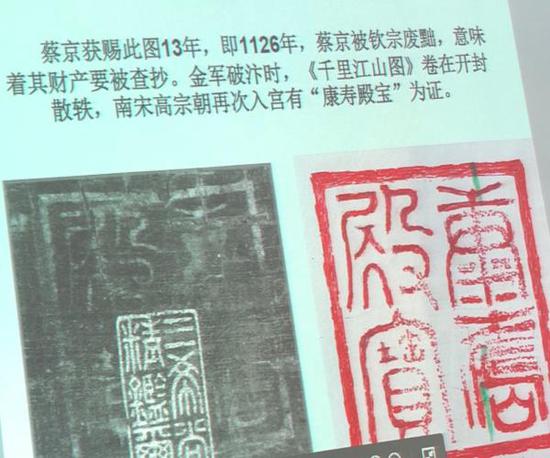 蔡京获赐此图13年，即1126年，蔡京被钦宗废黜，意味
着其财产要被查抄。金军破汴时，《千里江山图》卷在开封
散轶，南宋高宗朝再次入宫有“康寿殿宝”为证。
殿寶